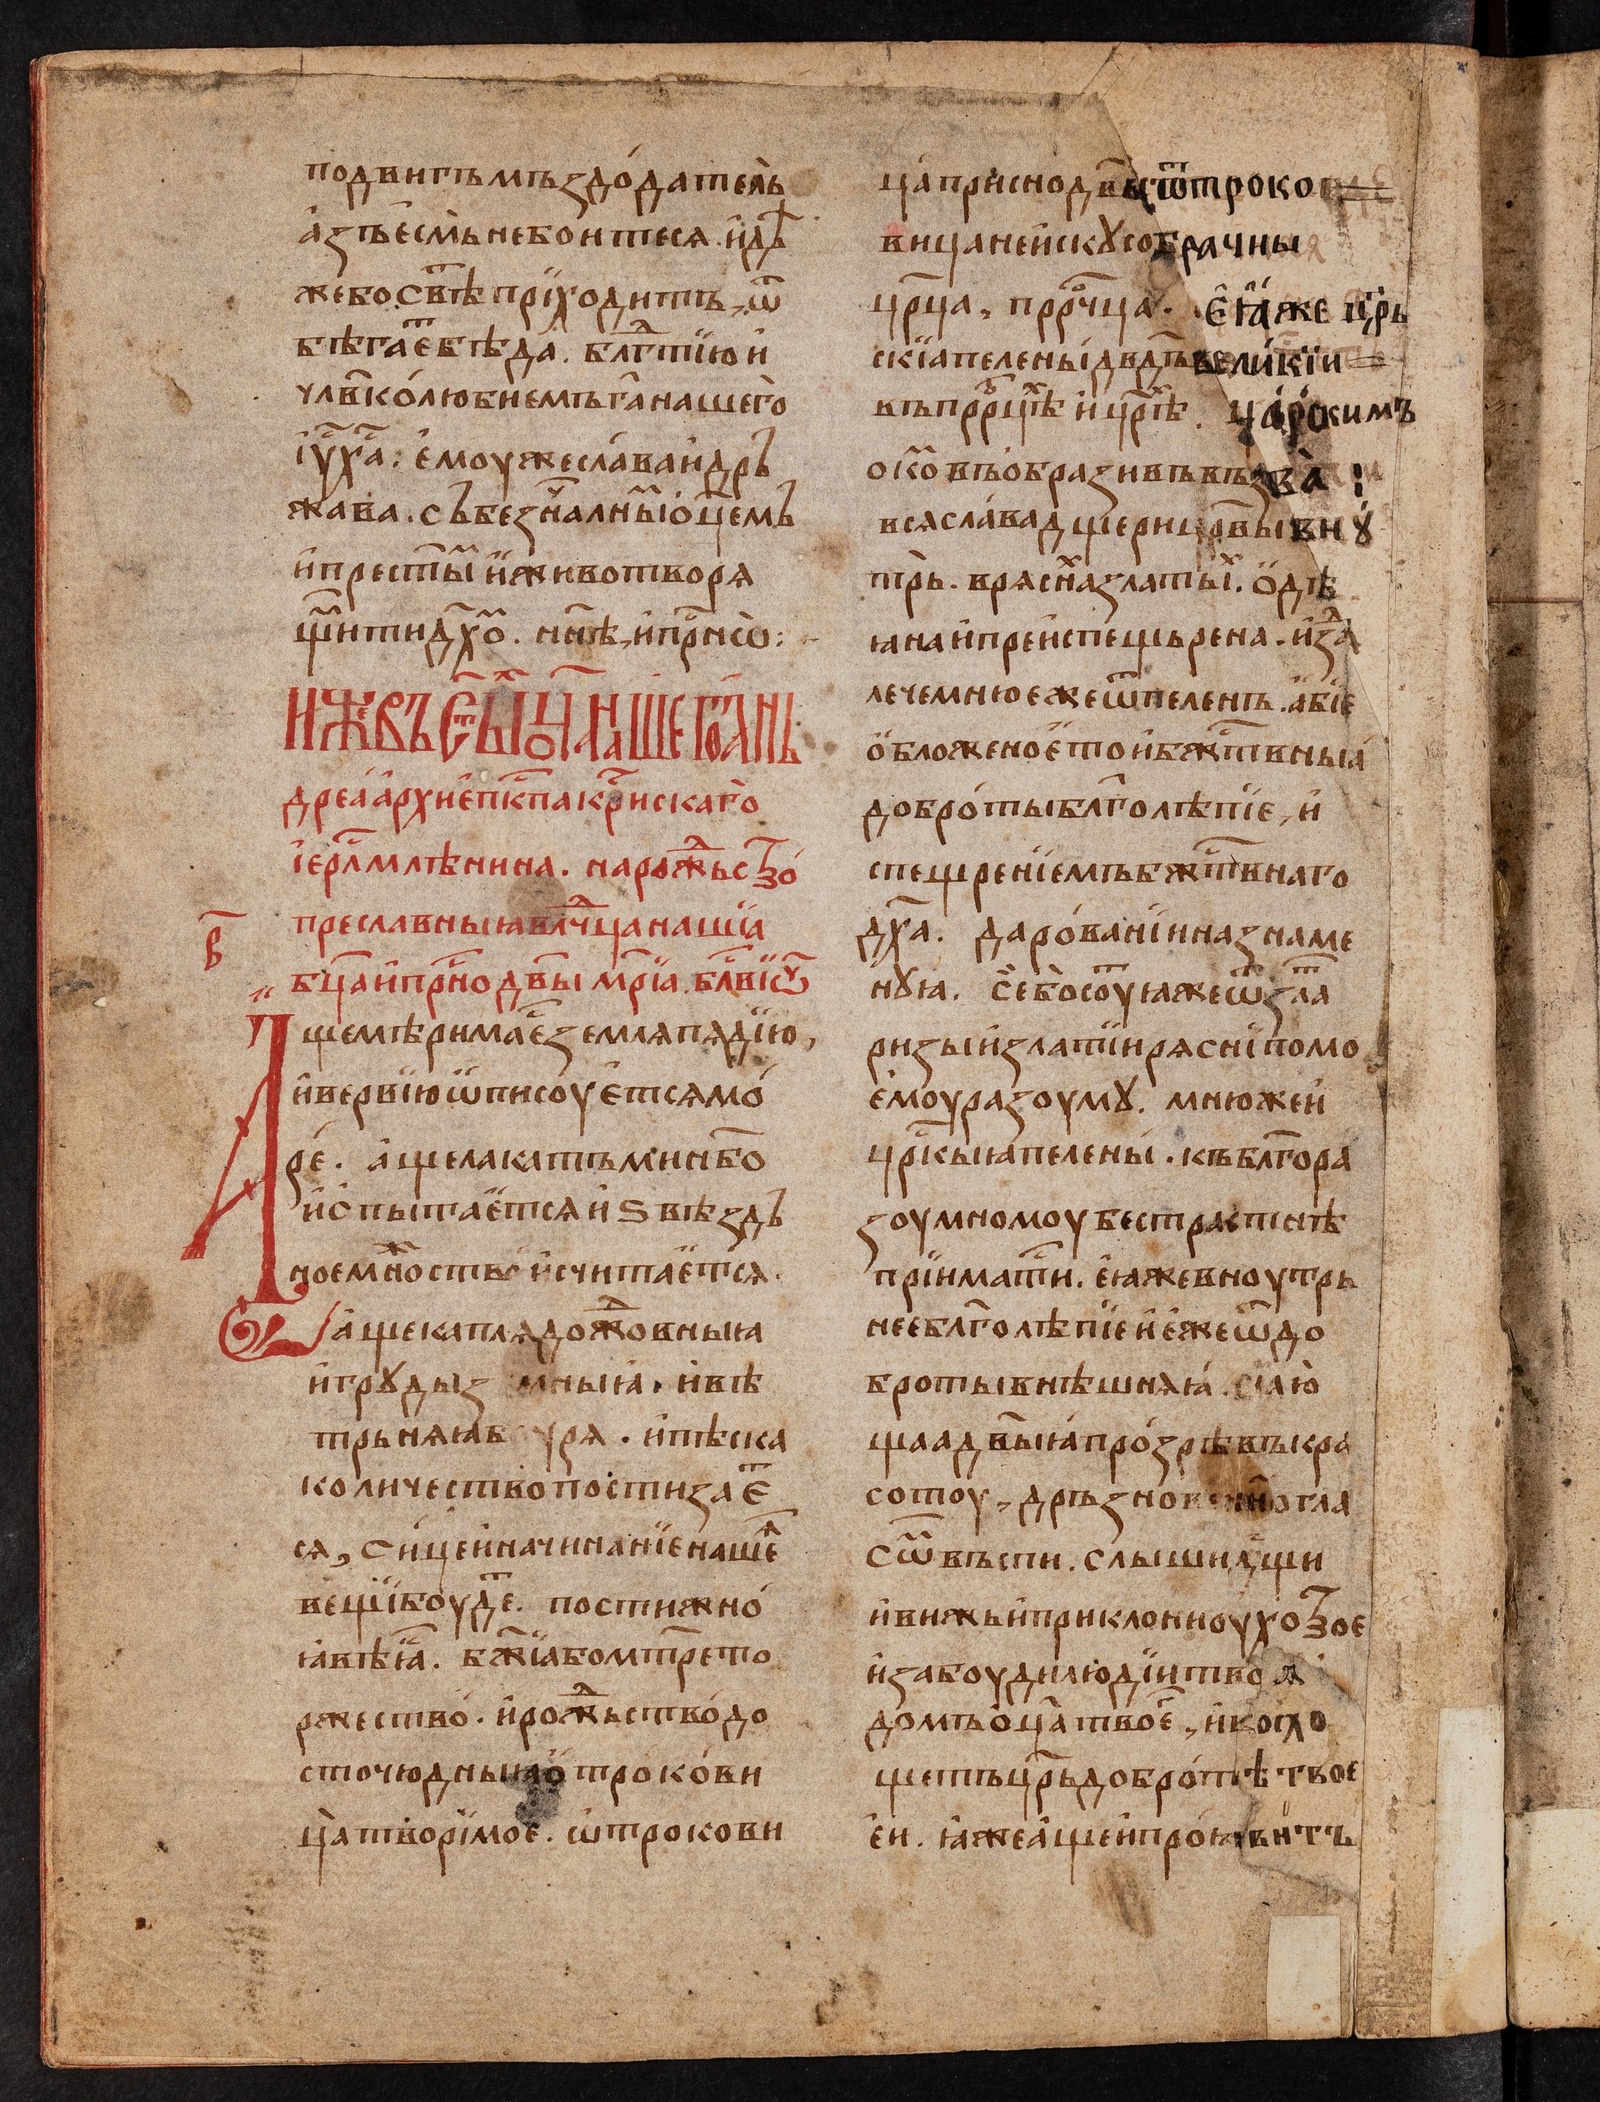 подвигъмъздо́датель
а҆зъе҆смьнебоитеся. и҆дѣ
жебосвт҃ѣприходитъ, ѿ
бѣгае҆тбѣда. блг҃тїюи҆
ч҃лвко́любиемъга҃нашего̀
і҆у҃ха҃. е҆моужесла́ваи҆дръ
жава. събезнача́лнымо҆ц҃емъ
и҆прест҃ымъи҆животворя
щимидх҃омъ. нн҃ѣ, и҆прн҃сѡ:
и҆жевъст҃ыхоц҃анашегоа҆нь
дреа҆а҆рхие҆пк҃пакри́скаго̀
і҆ерл҃млѣнина. нарожьство́
преславныꙗвлⷣчцанашїа
бц҃аи҆прⷭ҇нодв҃ымр҃їа. блⷭ҇виѿч
в҃
А҆щемѣримае҆тземляпядїю,
и҆вервїюѡ҆писоуе҆тсямо́
ре́. а҆щелакатъминб҃о
и҆и҆спытае҆тсяи҆ѕвѣздъ
ноемно́жствои҆считае҆тся.
а҆щекаплядожⷣовныꙗ
и҆грꙋдыземныꙗ. и҆вѣ
трьняꙗбоуря. и҆пѣска
количествопостизае҆т
ся, си́цеи҆начинанїенашеꙗ
вещибоуде҆т. постижно́
ꙗ҆вѣꙗ. бж҃їꙗбомт҃рето
ржество́. и҆рожⷣьство́до
сточюдныꙗо҆тро́ко́ви
ца̀творїмое. ѡ҆трокови
ца̀при́снодв҃ыцѿтроко
вицанеи҆скꙋсобрачны
цр҃ца, прⷪ҇рчца. Е҆ꙗ҆же цр҃ь
скїапелены̀дв҃дъвели́кїи
въпрⷪ҇рцѣхъи҆цр҃ѣхъ. ца́рскимъ
о҆комъвъо҆бразивъвъзва̀:
всясла́вадщерицр҃вывнꙋ́
трь. врясна́хъзлаты́хъ. ѻ҆дѣ
ꙗнаи҆преи҆спещьрена. и҆за
лечемнюежеѿпеленъ. а҆бїе
ѻ҆бложеное҆тои҆бжⷭ҇твныꙗ
добро́тыблг҃олѣпїе, и҆
спещренїемъбжⷭ҇твнаго
дх҃а. даро́ванїи҆назнаме
нꙋꙗ. се́бо̀соуꙗжеѿзла
ризыи҆златїи҆ряснїпомо
е҆моуразоумꙋ. мнюжеи҆
црⷭ҇кыꙗпелены̀. къблг҃ора
зоумномоубестрастнѣ
прїи҆мати. е҆ꙗжевноутрь
нееблг҃олѣпїеи҆е҆жеѿдо
бротывнѣшняꙗ. сїꙗю
щаадв҃ыꙗпро́зрѣвъкра
сотоу, дръзновенногла
сомъвъспи. слышидщи
и҆вижьи҆приклонноухотвое
и҆забоудилюдїитвоя
домъо҆ц҃атвое҆го, и҆въсхо
щетъцр҃ьдобро́тѣ твое
е҆и. ꙗ҆жеа҆щеи҆проꙗвитъ